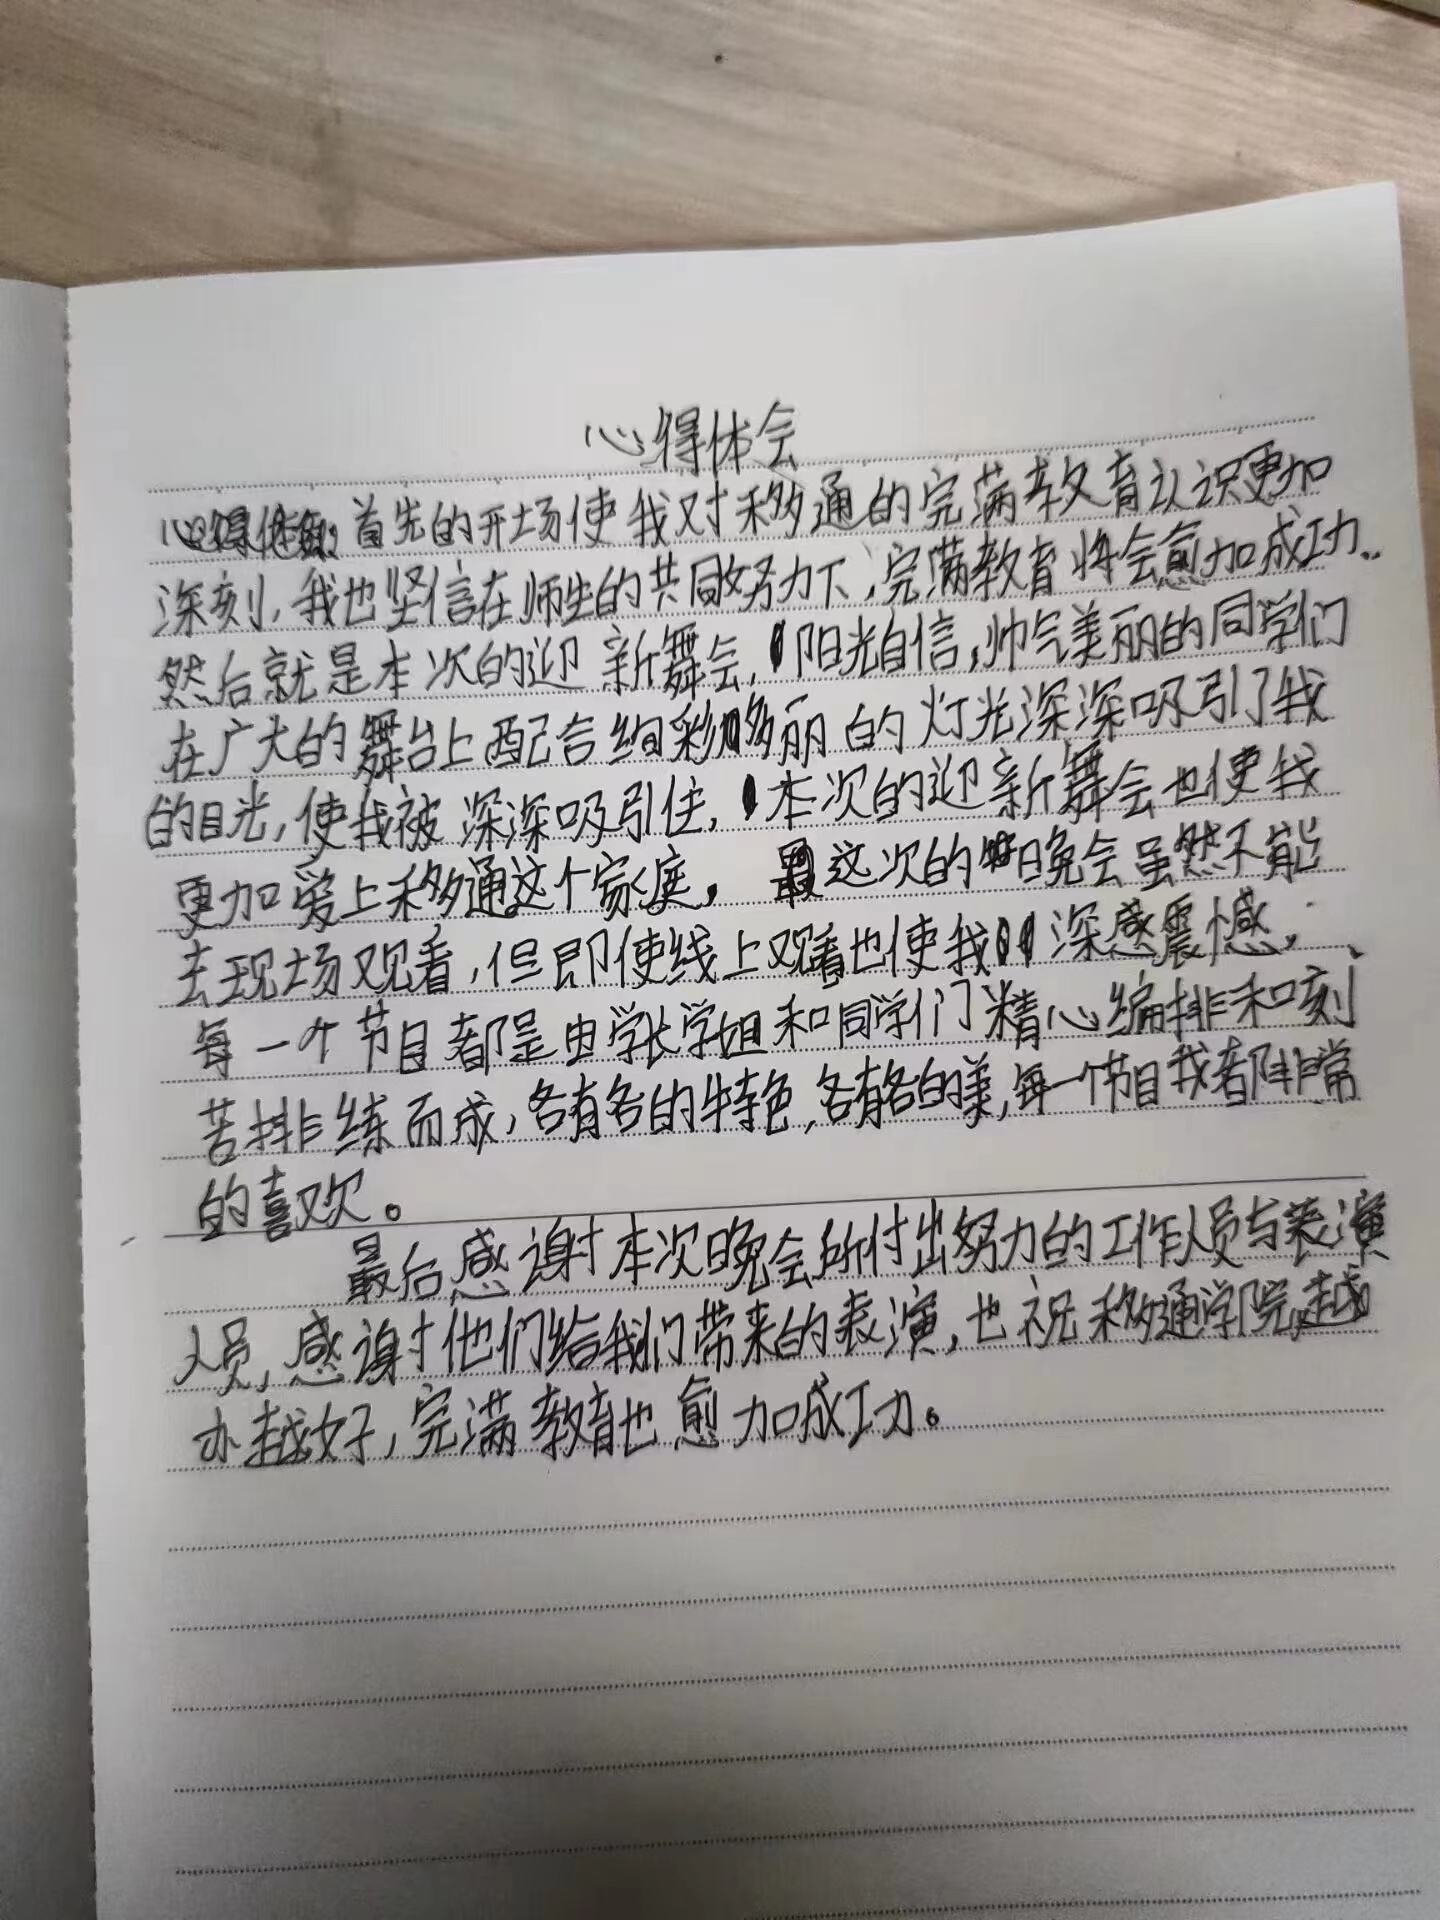 心得体会
首先的开场使我对移通的完满教育认识更加
深刻，我也坚信在师生的共同努力下，完满教育将会愈加成功..
然后就是本次的迎新舞会，阳光自信，帅气美丽的同学们
在广大的舞台上配合绚彩多丽的灯光深深吸引了我
的目光，使我被深深吸引住，本次的迎新舞会也使我
更加爱上移通这个家庭，这次的晚会虽然不能
去现场观看，但即使线上观看也使我深感震憾，
每一个节目都是由学长学姐和同学们精心编排和刻
苦排练而成，各有各的特色，各有各的美，每一个节目我都非常
的喜欢。
最后感谢本次晚会所付出努力的工作人员与表演
人员，感谢他们给我们带来的表演，也祝移通学院越
办越好，完满教育也愈加成功。